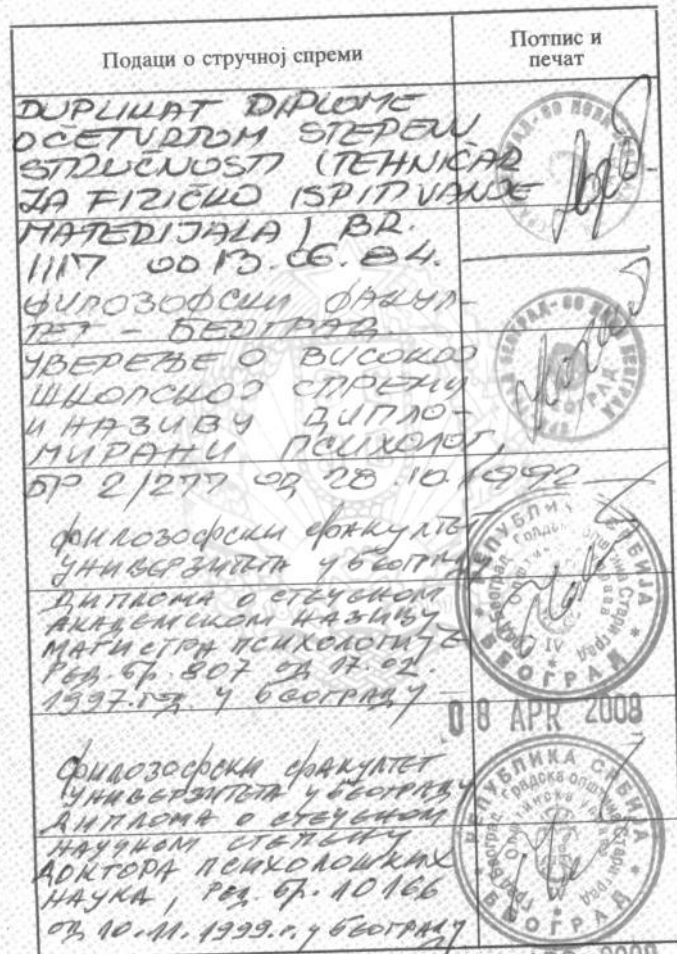 Подаци о стручној спреми
Потпис и
печат
DUPLIKAT DIPLOME
O ČETVRTOM STEPENU
STRUČNOSTI (TEHNIČAR
ZA FIZIČKO ISPITIVANJE
MATERIJALA) BR.
1117 OD 13.06.84.
ФИЛОЗОФСКИ ФАКУЛ-
ТЕТ - БЕОГРАД
УВЕРЕЊЕ О ВИСОКОЈ
ШКОЛСКОЈ СПРЕМИ
И НАЗИВУ ДИПЛО-
МИРАНИ ПСИХОЛОГ,
БР 2/277 ОД 28.10.1992
ФИЛОЗОФСКИ ФАКУЛТЕТ
УНИВЕРЗИТЕТА У БЕОГРАДУ
ДИПЛОМА О СТЕЧЕНОМ
АКАДЕМСКОМ НАЗИВУ
МАГИСТРА ПСИХОЛОГИЈЕ
РЕД. БР. 807 ОД 17.02.
1997. год. У БЕОГРАДУ
РЕПУБЛИКА СРБИЈА
БЕОГРАД
08 APR 2008
ФИЛОЗОФСКИ ФАКУЛТЕТ
УНИВЕРЗИТЕТА У БЕОГРАДУ
ДИПЛОМА О СТЕЧЕНОМ
НАУЧНОМ СТЕПЕНУ
ДОКТОРА ПСИХОЛОШКИХ
НАУКА, РЕД. БР. 10166
ОД 10.11.1999.г. У БЕОГРАДУ
РЕПУБЛИКА СРБИЈА
Град Београд Градска општина Стари град
БЕОГРАД